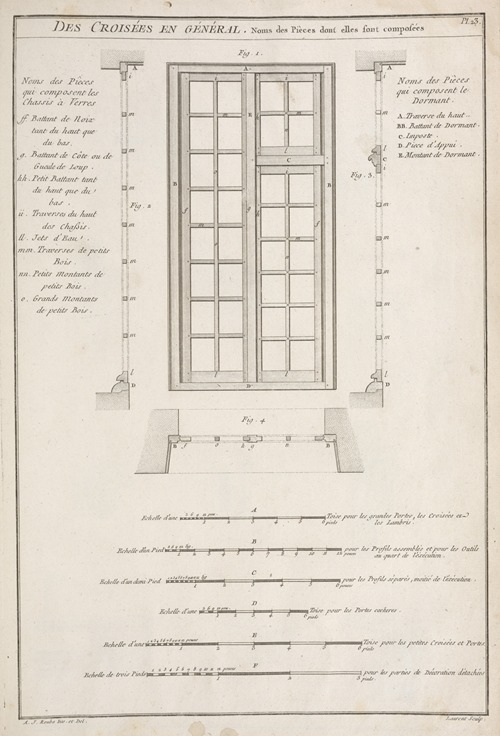 DES CROISÉES EN GÉNÉRAL. Noms des Pièces dont elles sont composées
Pl. 23.
Fig. 1.
Noms des Pièces
qui composent les
Chassis à Verres
ff. Battant de Noix
tant du haut que
du bas.
g. Battant de Côte ou de
Gueule de Loup.
hh. Petit Battant tant
du haut que du
bas.
ii. Traverses du haut
des Chassis.
ll. Jets d'Eau.
mm. Traverses de petits
Bois.
nn. Petits Montants de
petits Bois.
o. Grands Montants
de petits Bois.
Fig. 2
Noms des Pièces
qui composent le
Dormant.
A. Traverse du haut.
BB. Battant de Dormant.
C. Imposte.
D. Pièce d'Appui.
E. Montant de Dormant.
Fig. 3.
Fig. 4.
A
Echelle d'une Toise pour les grandes Portes, les Croisées et
les Lambris.
B
Echelle d'un Pied pour les Profils assemblés et pour les Outils
au quart de l'exécution.
C
Echelle d'un demi Pied pour les Profils séparés, moitié de l'exécution.
D
Echelle d'une Toise pour les Portes cocheres.
E
Echelle d'une Toise pour les petites Croisées et Portes
F
Echelle de trois Pieds pour les parties de Décoration détachées
A. J. Roubo Inv. et Del.
Laurent Sculp.